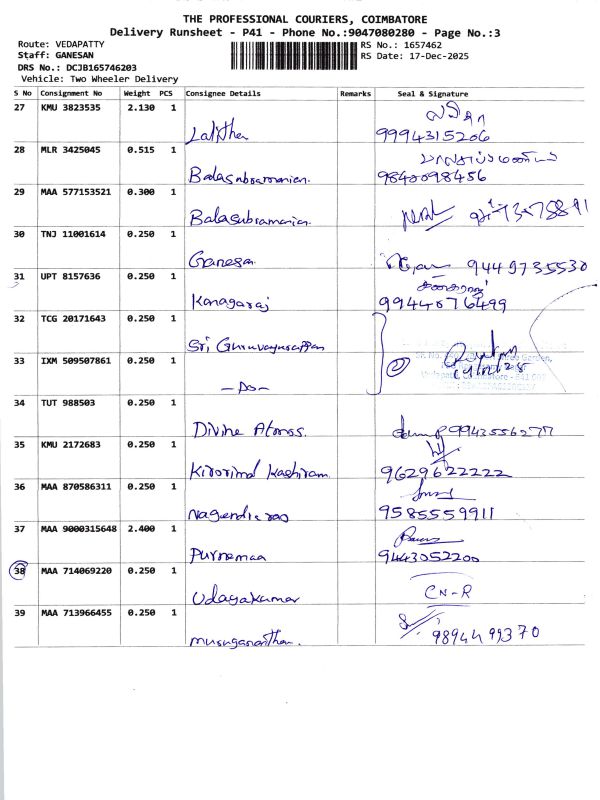 THE PROFESSIONAL COURIERS, COIMBATORE
Delivery Runsheet - P41 - Phone No.:9047080280 - Page No.:3
Route: VEDAPATTY
RS No.: 1657462
Staff: GANESAN
RS Date: 17-Dec-2025
DRS No.: DCJB165746203
Vehicle: Two Wheeler Delivery
S No Consignment No Weight PCS Consignee Details Remarks Seal & Signature
27 KMU 3823535 2.130 1
Lalitha 9994315206
28 MLR 3425045 0.515 1
Balasubramanian. 9840098456
29 MAA 577153521 0.300 1
Balasubramanian.
30 TNJ 11001614 0.250 1
Ganesan 9449735530
31 UPT 8157636 0.250 1
Kanagaraj 9944076499
32 TCG 20171643 0.250 1
Sri Guruvayurappan
33 IXM 509507861 0.250 1
2
—Do—
34 TUT 988503 0.250 1
Divine Atoms. 9943556277
35 KMU 2172683 0.250 1
9629622222
36 MAA 870586311 0.250 1
Nagendra rao 9585559911
37 MAA 9000315648 2.400 1
Purnemaa 9443052200
38 MAA 714069220 0.250 1
CN-R
Udayakumar
39 MAA 713966455 0.250 1
9894499370
Muruganathan.